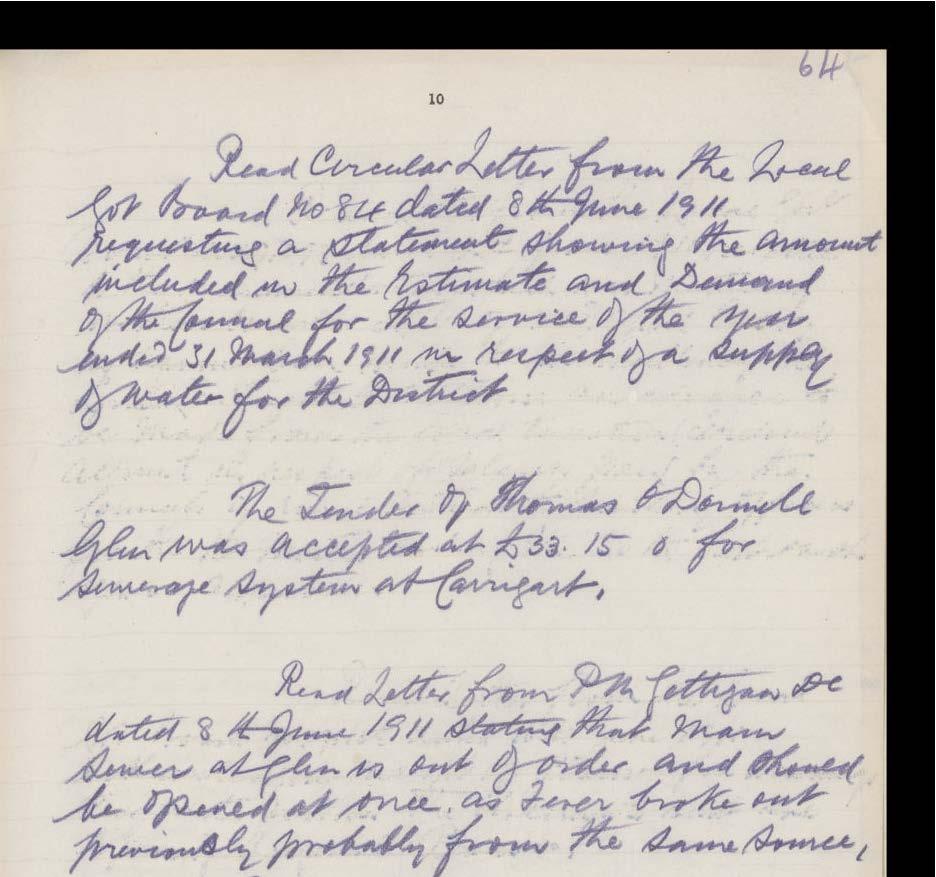 64
10
Read Circular Letter from the Local
Gov Board No 84 dated 8th June 1911
requesting a statement showing the amount
included in the Estimate and Demand
of the Council for the service of the year
ended 31 March 1911 in respect of a supply
of water for the District
The Tender of Thomas O Donnell
Glen was accepted at £33. 15 0 for
Sewerage System at Carrigart.
Read Letter from P McGettigan DC
dated 8th June 1911 stating that Main
Sewer at Glen is out of order and should
be opened at once. as Fever broke out
previously probably from the same source,